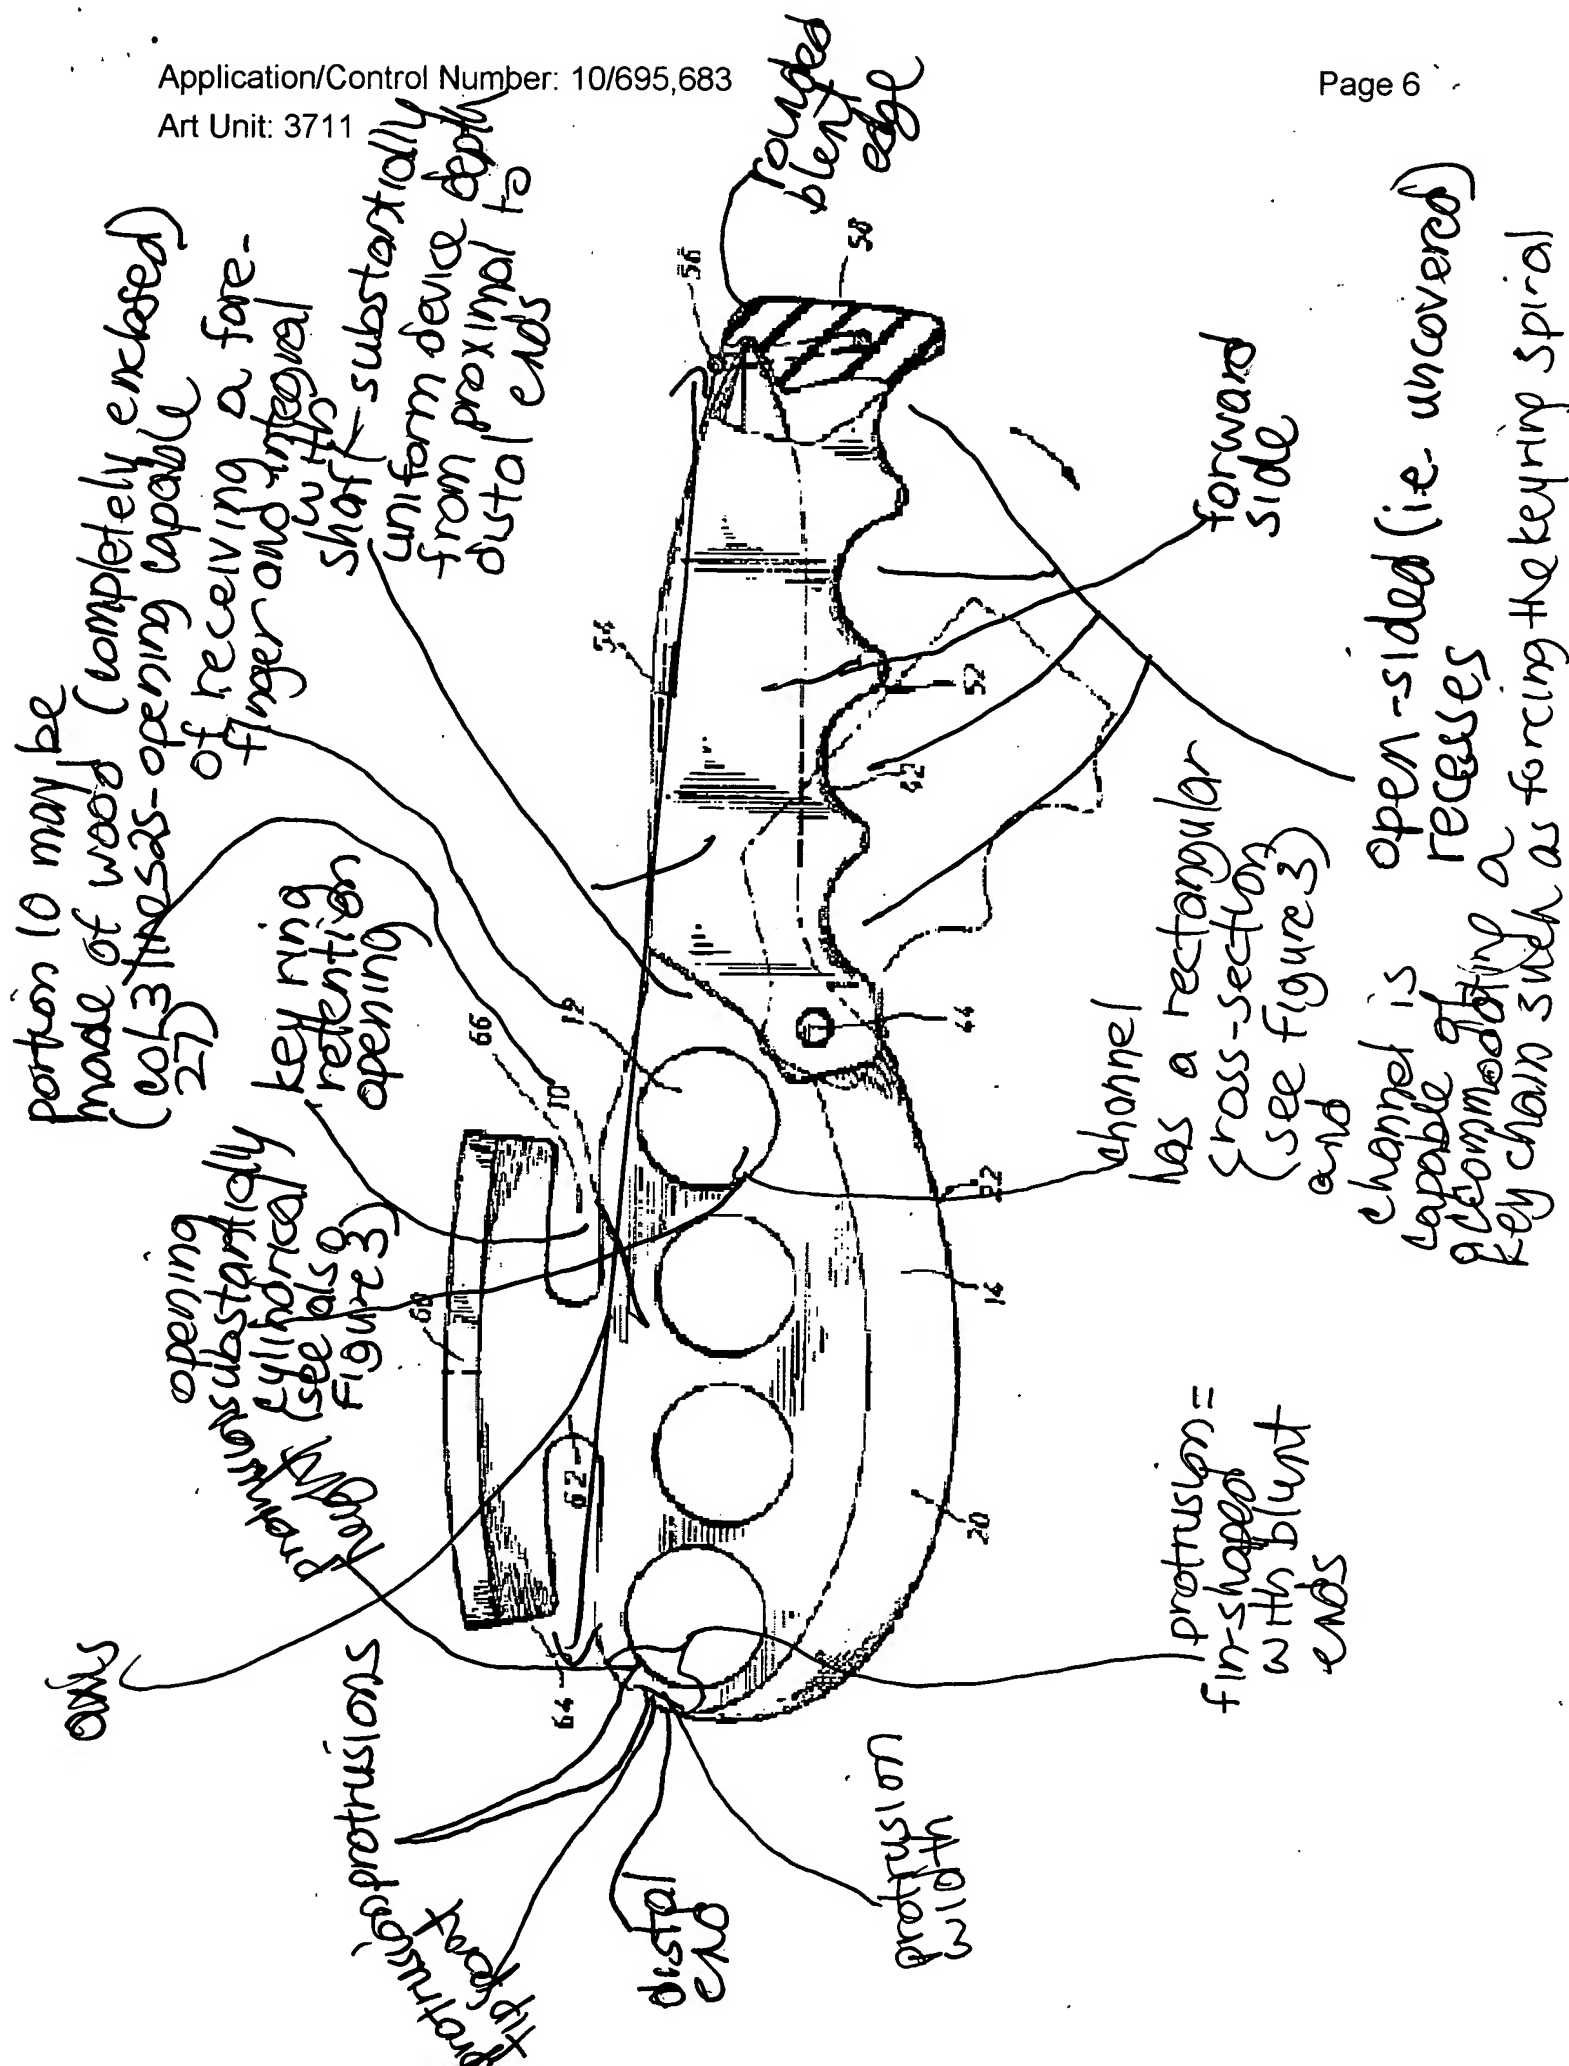 Application/Control Number: 10/695,683
Page 6
Art Unit: 3711
portion 10 may be
made of wood
(col 3 lines 25-
27)
(completely enclosed)
opening capable
of receiving a fore-
finger and integral
with
shaft
substantially
uniform device depth
from proximal to
distal ends
rounded
blent
edge
key ring
retention
opening
opening
substantially
cylindrical
(see also
Figure 3)
protrusion
height
axis
protrusions
protrusion
tip
distal
end
protrusion
width
protrusion =
fin-shaped
with blunt
ends
channel
has a rectangular
cross-section
(see figure 3)
and
channel is
capable of
accommodating a
key chain such as forcing the keyring spiral
open-sided (i.e. uncovered)
recesses
forward
side
56
58
54
52
42
44
12
10
66
68
62
64
22
14
20